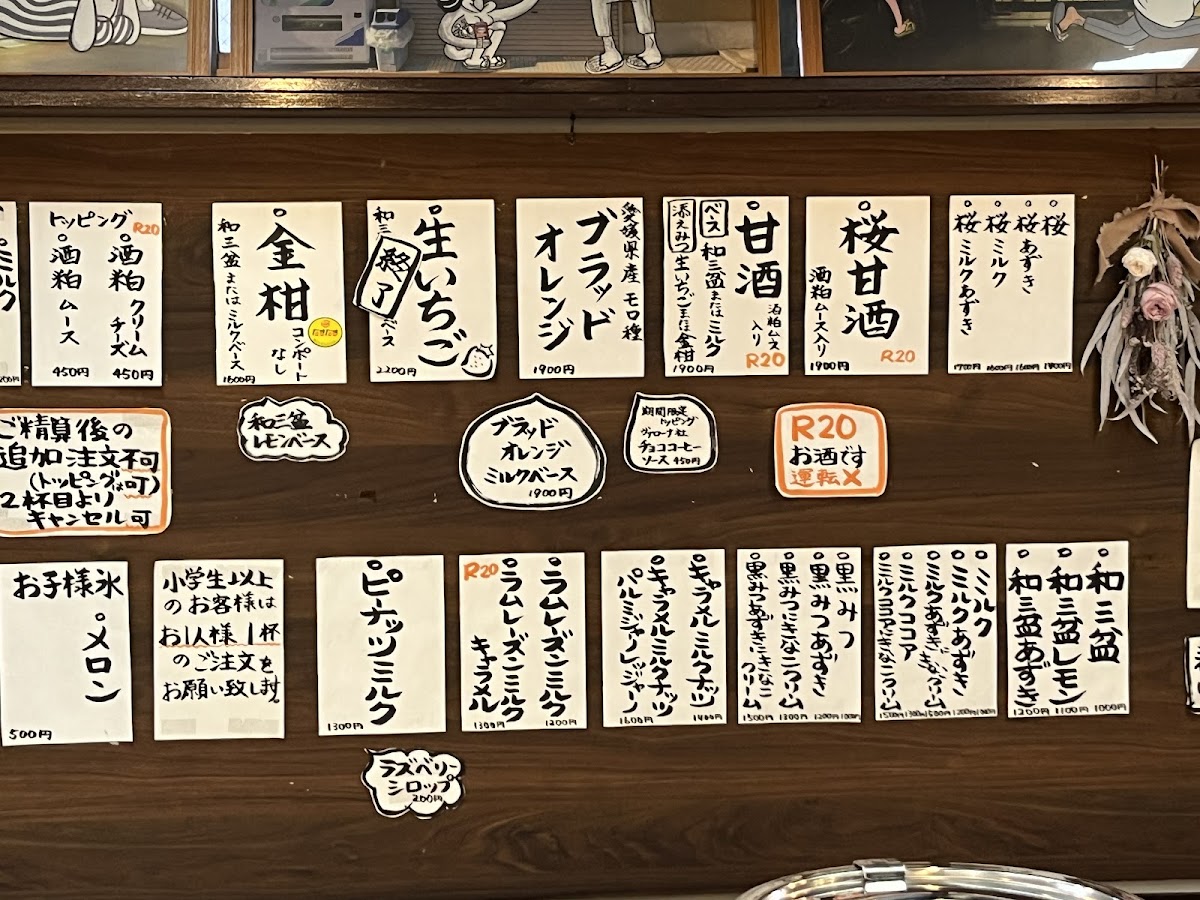 ミルク
トッピング R20
酒粕 クリームチーズ 450円
酒粕 ムース 450円
金柑
コンポートなし
和三盆またはミルクベース
1600円
生いちご
和三
終了
ベース
2200円
愛媛県産 モロ種
ブラッド
オレンジ
1900円
甘酒
酒粕ムース入り
R20
ベース 和三盆またはミルク
添えみつ 生いちごまたは金柑
1900円
桜甘酒
酒粕ムース入り
R20
1900円
桜
桜あずき
桜ミルク
桜ミルクあずき
ご精算後の
追加注文不可
(トッピングは可)
2杯目より
キャンセル可
和三盆
レモンベース
ブラッド
オレンジ
ミルクベース
1900円
期間限定
トッピング
ヴァローナ社
チョココーヒー
ソース 450円
R20
お酒です
運転X
お子様氷
メロン
500円
小学生以上
のお客様は
お1人様1杯
のご注文を
お願い致します。
ピーナッツミルク
1300円
ラムレーズンミルク 1200円
ラムレーズンミルク
キャラメル 1300円
R20
キャラメルミルクナッツ 1400円
キャラメルミルクナッツ
パルミジャーノレッジャーノ 1600円
黒みつ 1000円
黒みつあずき 1200円
黒みつきなこクリーム 1300円
黒みつあずききなこクリーム 1500円
ミルク 1000円
ミルクあずき 1200円
ミルクあずききなこクリーム 1500円
ミルクココア 1300円
ミルクココアきなこクリーム 1500円
和三盆 1000円
和三盆レモン 1100円
和三盆あずき 1200円
ラズベリー
シロップ
200円